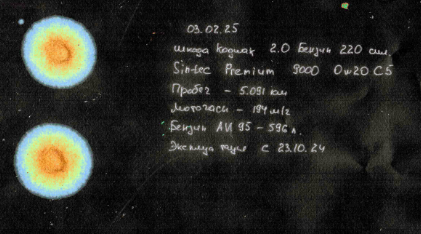 03.02.25
шкода Кодиак 2.0 Бензин 220 сил.
Sintec Premium 9000 0w20 C5
Пробег - 5.091 км
Моточасы - 194 м/ч
Бензин АИ 95 - 596 л.
Эксплуатация с 23.10.24